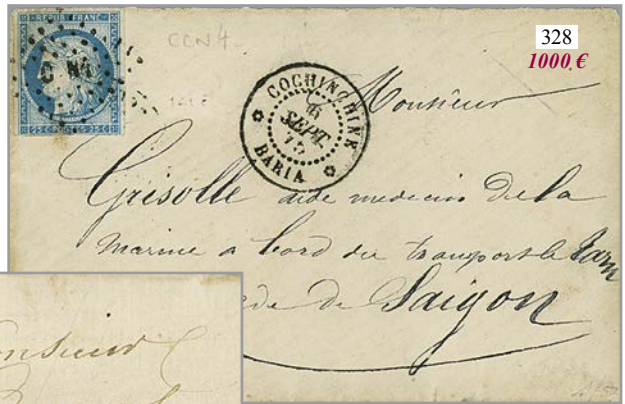 328
1000 €
REPUB. FRANC.
25 C. POSTES 25 C.
CCN4
COCHINCHINE
SEPT.
75
BARIA
Monsieur
Grisolle aide medecin de la
marine a bord du transport le Tarn
de de Saigon
onsieur